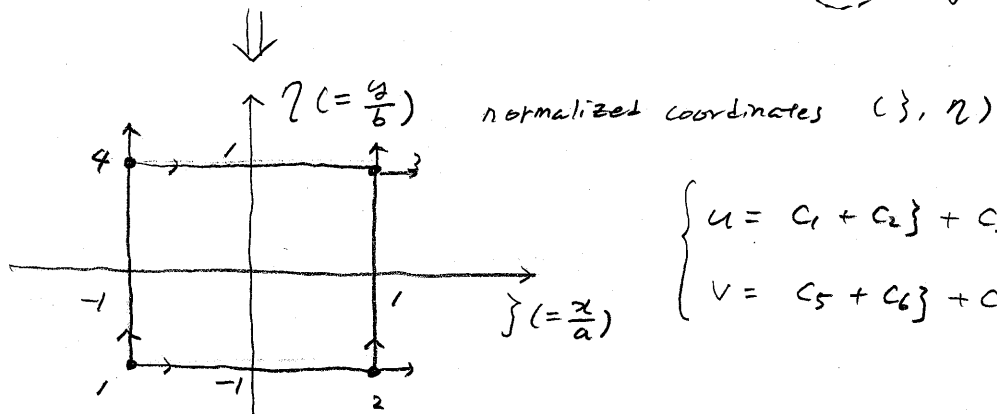 η (= y/b) normalized coordinates (ξ, η)
4 1 3
u = C₁ + C₂ξ + C
-1 1
ξ (= x/a)
v = C₅ + C₆ξ + C
1 -1 2